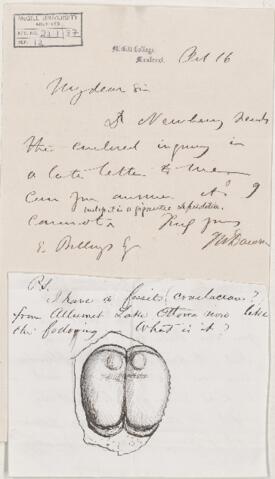 McGILL UNIVERSITY
ARCHIVES
ACC. NO.
REF.
McGill College,
Montreal.
Oct 16
My dear Sir
Dr Newberry sends
the enclosed inquiry in
a late letter to me
Can you answer it? I
cannot. unless it is a gigantic
Truly yours
E. Billings Esq
JWDawson
P.S.
I have a fossil (crustacean?)
from Allumet Lake Ottawa river like
the fodoging What is it?